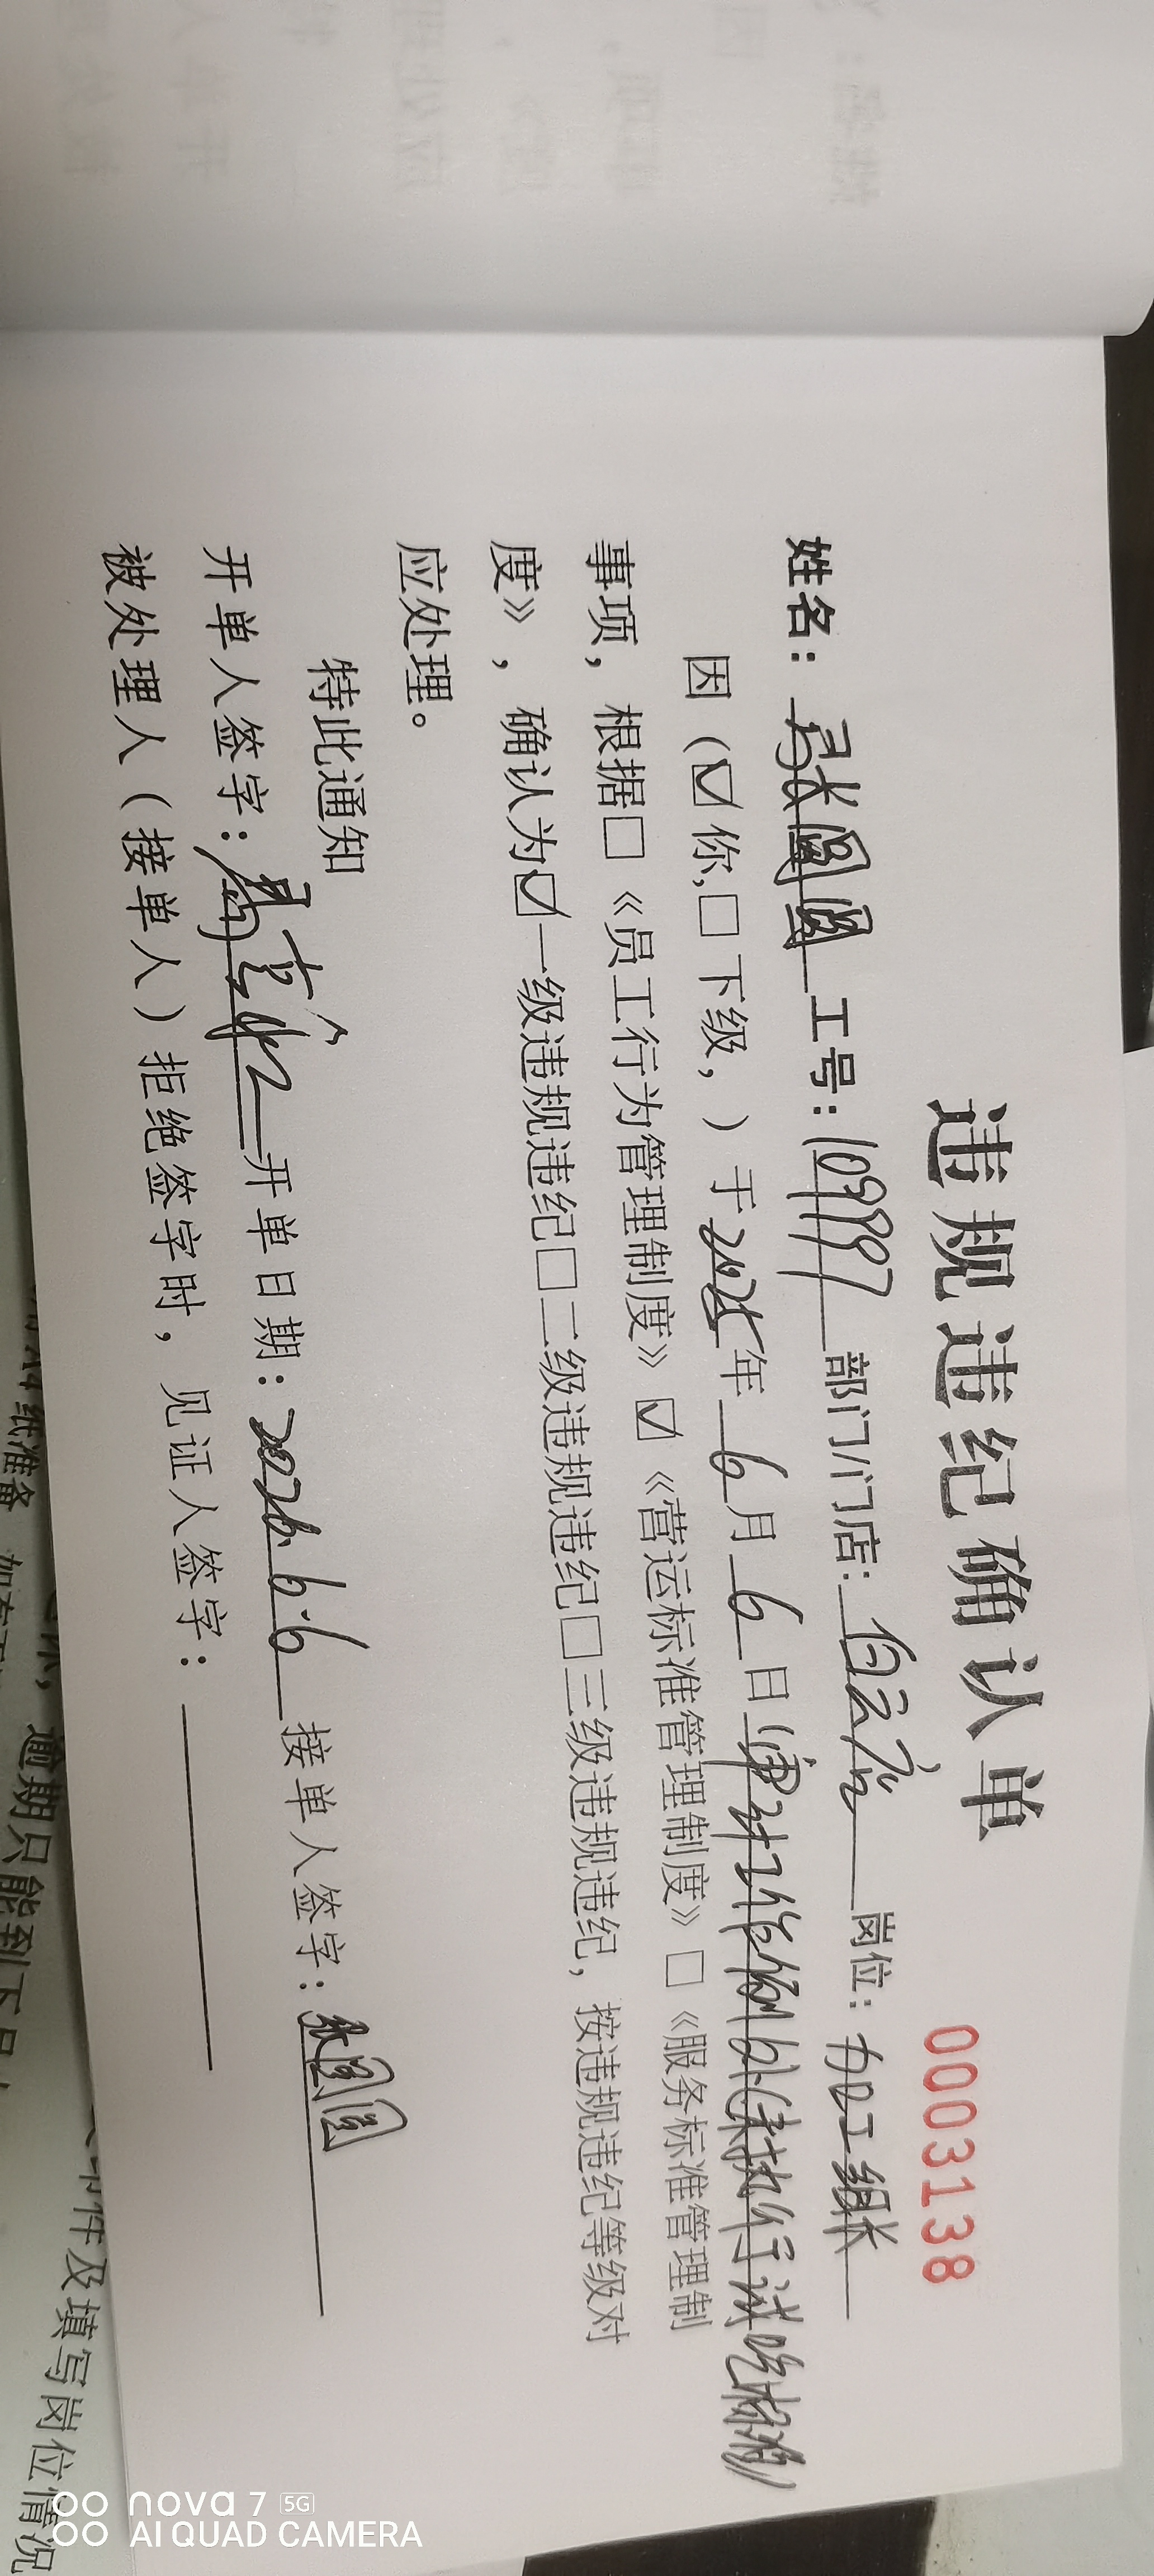 违规违纪确认单
0003138
姓名：张圆圆 工号：109997 部门/门店：白云店 岗位：加工组长
因（☑你,□下级，）于2026年6月6日（审计工作 未执行试吃
事项，根据□《员工行为管理制度》☑《营运标准管理制度》□《服务标准管理制
度》，确认为☑一级违规违纪□二级违规违纪□三级违规违纪，按违规违纪等级对
应处理。
特此通知
开单人签字： 开单日期：2026.6.6 接单人签字：张圆圆
被处理人（接单人）拒绝签字时，见证人签字：
A4纸准备
逾期只能到下月
件及填写岗位情况
nova 7 5G
AI QUAD CAMERA